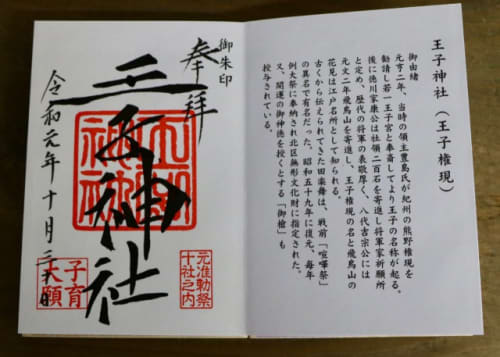 王子神社（王子権現）
御由緒
元亨二年、当時の領主豊島氏が紀州の熊野権現を
勧請し若一王子宮と奉斎してより王子の名称が起る。
後に徳川家康公は社領二百石を寄進し将軍家祈願所
と定め、歴代の将軍の表敬厚く、八代吉宗公には
元文二年飛鳥山を寄進し、王子権現の名と飛鳥山の
花見は江戸名所として知られる。
古くから伝えられてきた田楽舞は、戦前「喧嘩祭」
の異名で有名だった。昭和五十九年に復元、毎年
例大祭に奉納され北区無形文化財に指定された。
又、開運の御神徳を授くとする「御槍」も
授与されている。
御朱印
奉拝
王子神社
元准勅祭
十社之内
令和元年十月三十日
子育
大願